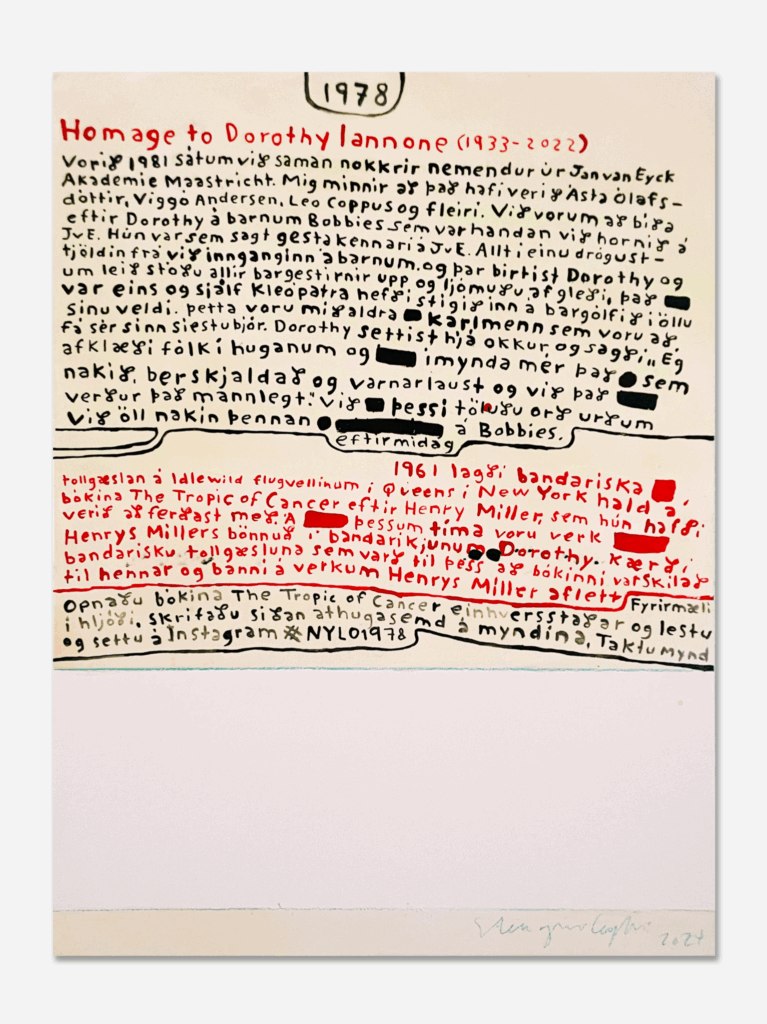 1978
Homage to Dorothy Iannone (1933-2022)
Vorið 1981 sátum við saman nokkrir nemendur úr Jan van Eyck
Akademie Maastricht. Mig minnir að það hafi verið Ásta Ólafs-
dóttir, Viggó Andersen, Leo Coppus og fleiri. Við vorum að bíða
eftir Dorothy á barnum Bobbies sem var handan við hornið á
JvE. Hún var sem sagt gestakennari á JvE. Allt í einu drógust-
tjöldin frá við innganginn á barnum og þar birtist Dorothy og
um leið stóðu allir bargestirnir upp og ljómuðu af gleði, það
var eins og sjálf Kleópatra hefði stigið inn á bargólfið í öllu
sínu veldi. Þetta voru miðaldra karlmenn sem voru að
fá sér sinn síestubjór. Dorothy settist hjá okkur, og sagði „Ég
afklæði fólk í huganum og ímynda mér það sem
nakið, berskjaldað og varnarlaust og við það
verður það mannlegt." Við þessi töluðu orð urðum
við öll nakin þennan á Bobbies.
eftirmiðdag
1961 lagði bandaríska
tollgæslan á Idlewild flugvellinum í Queens í New York hald á
bókina The Tropic of Cancer eftir Henry Miller, sem hún hafði
verið að ferðast með. Á þessum tíma voru verk
Henrys Millers bönnuð í bandaríkjunum Dorothy. kærði
bandarísku tollgæsluna sem varð til þess að bókinni var skilað
til hennar og banni á verkum Henrys Miller aflétt
Fyrirmæli
Opnaðu bókina The Tropic of Cancer einhversstaðar og lestu
í hljóði, skrifaðu síðan athugasemd á myndina, Taktu mynd
og settu á Instagram #NYLO1978
2024